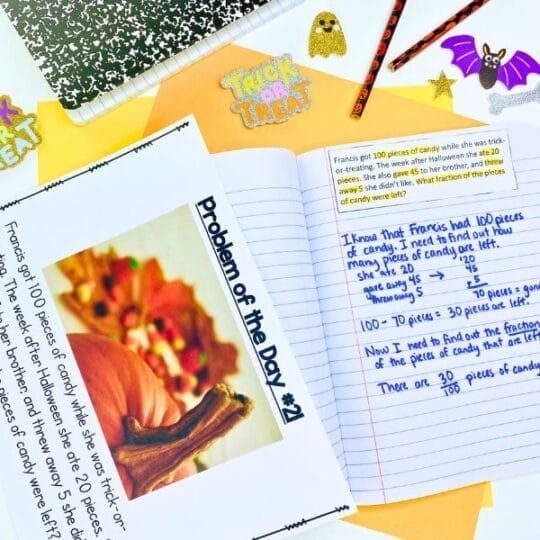 TRICK
OR
TREAT
OR
TREAT
Problem of the Day #21
Francis got 100 pieces of candy while she was trick-or-
ting. The week after Halloween she ate 20 pieces.
to her brother, and threw away 5 she di
pieces of candy were left?
Francis got 100 pieces of candy while she was trick-
or-treating. The week after Halloween she ate 20
pieces. She also gave 45 to her brother, and threw
away 5 she didn't like. What fraction of the pieces
of candy were left?
I know that Francis had 100 pieces
of candy. I need to find out how
many pieces of candy are left.
she ate 20 → 20
gave away 45 45
threw away 5 + 5
70 pieces = gon
100 - 70 pieces = 30 pieces are left.
Now I need to find out the fraction
of the pieces of candy that are left
There are 30/100 pieces of candy